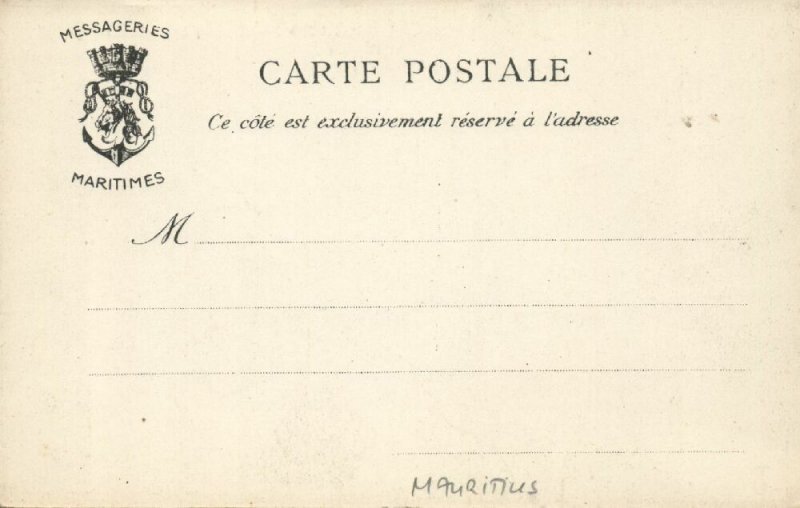 MESSAGERIES
MARITIMES
CARTE POSTALE
Ce côté est exclusivement réservé à l'adresse
M
MAURITIUS